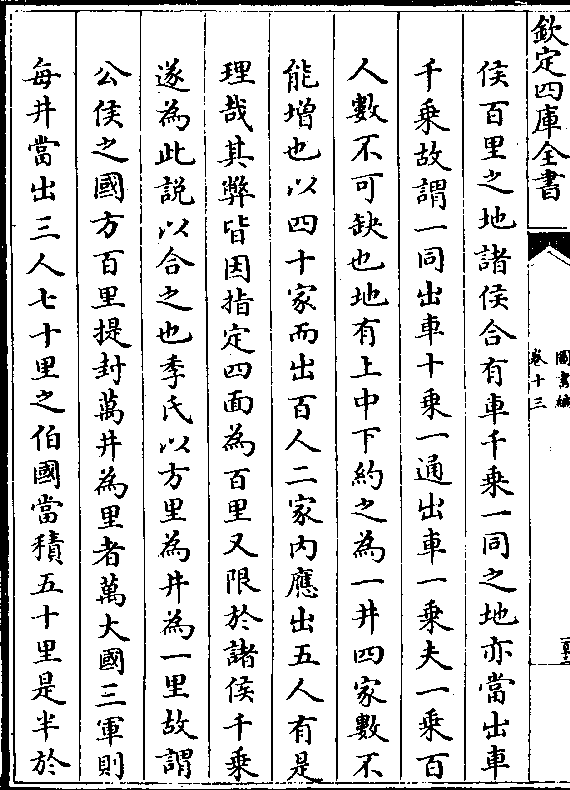 欽定四庫全書
圖書編
卷十三
侯百里之地諸侯合有車千乘一同之地亦當出車
千乘故謂一同出車十乘一通出車一乘夫一乘百
人數不可缺也地有上中下約之為一井四家數不
能增也以四十家而出百人二家内應出五人有是
理哉其弊皆因指定四面為百里又限於諸侯千乘
遂為此説以合之也季氏以方里為井為一里故謂
公侯之國方百里提封萬井為里者萬大國三軍則
每井當出三人七十里之伯國當積五十里是半於